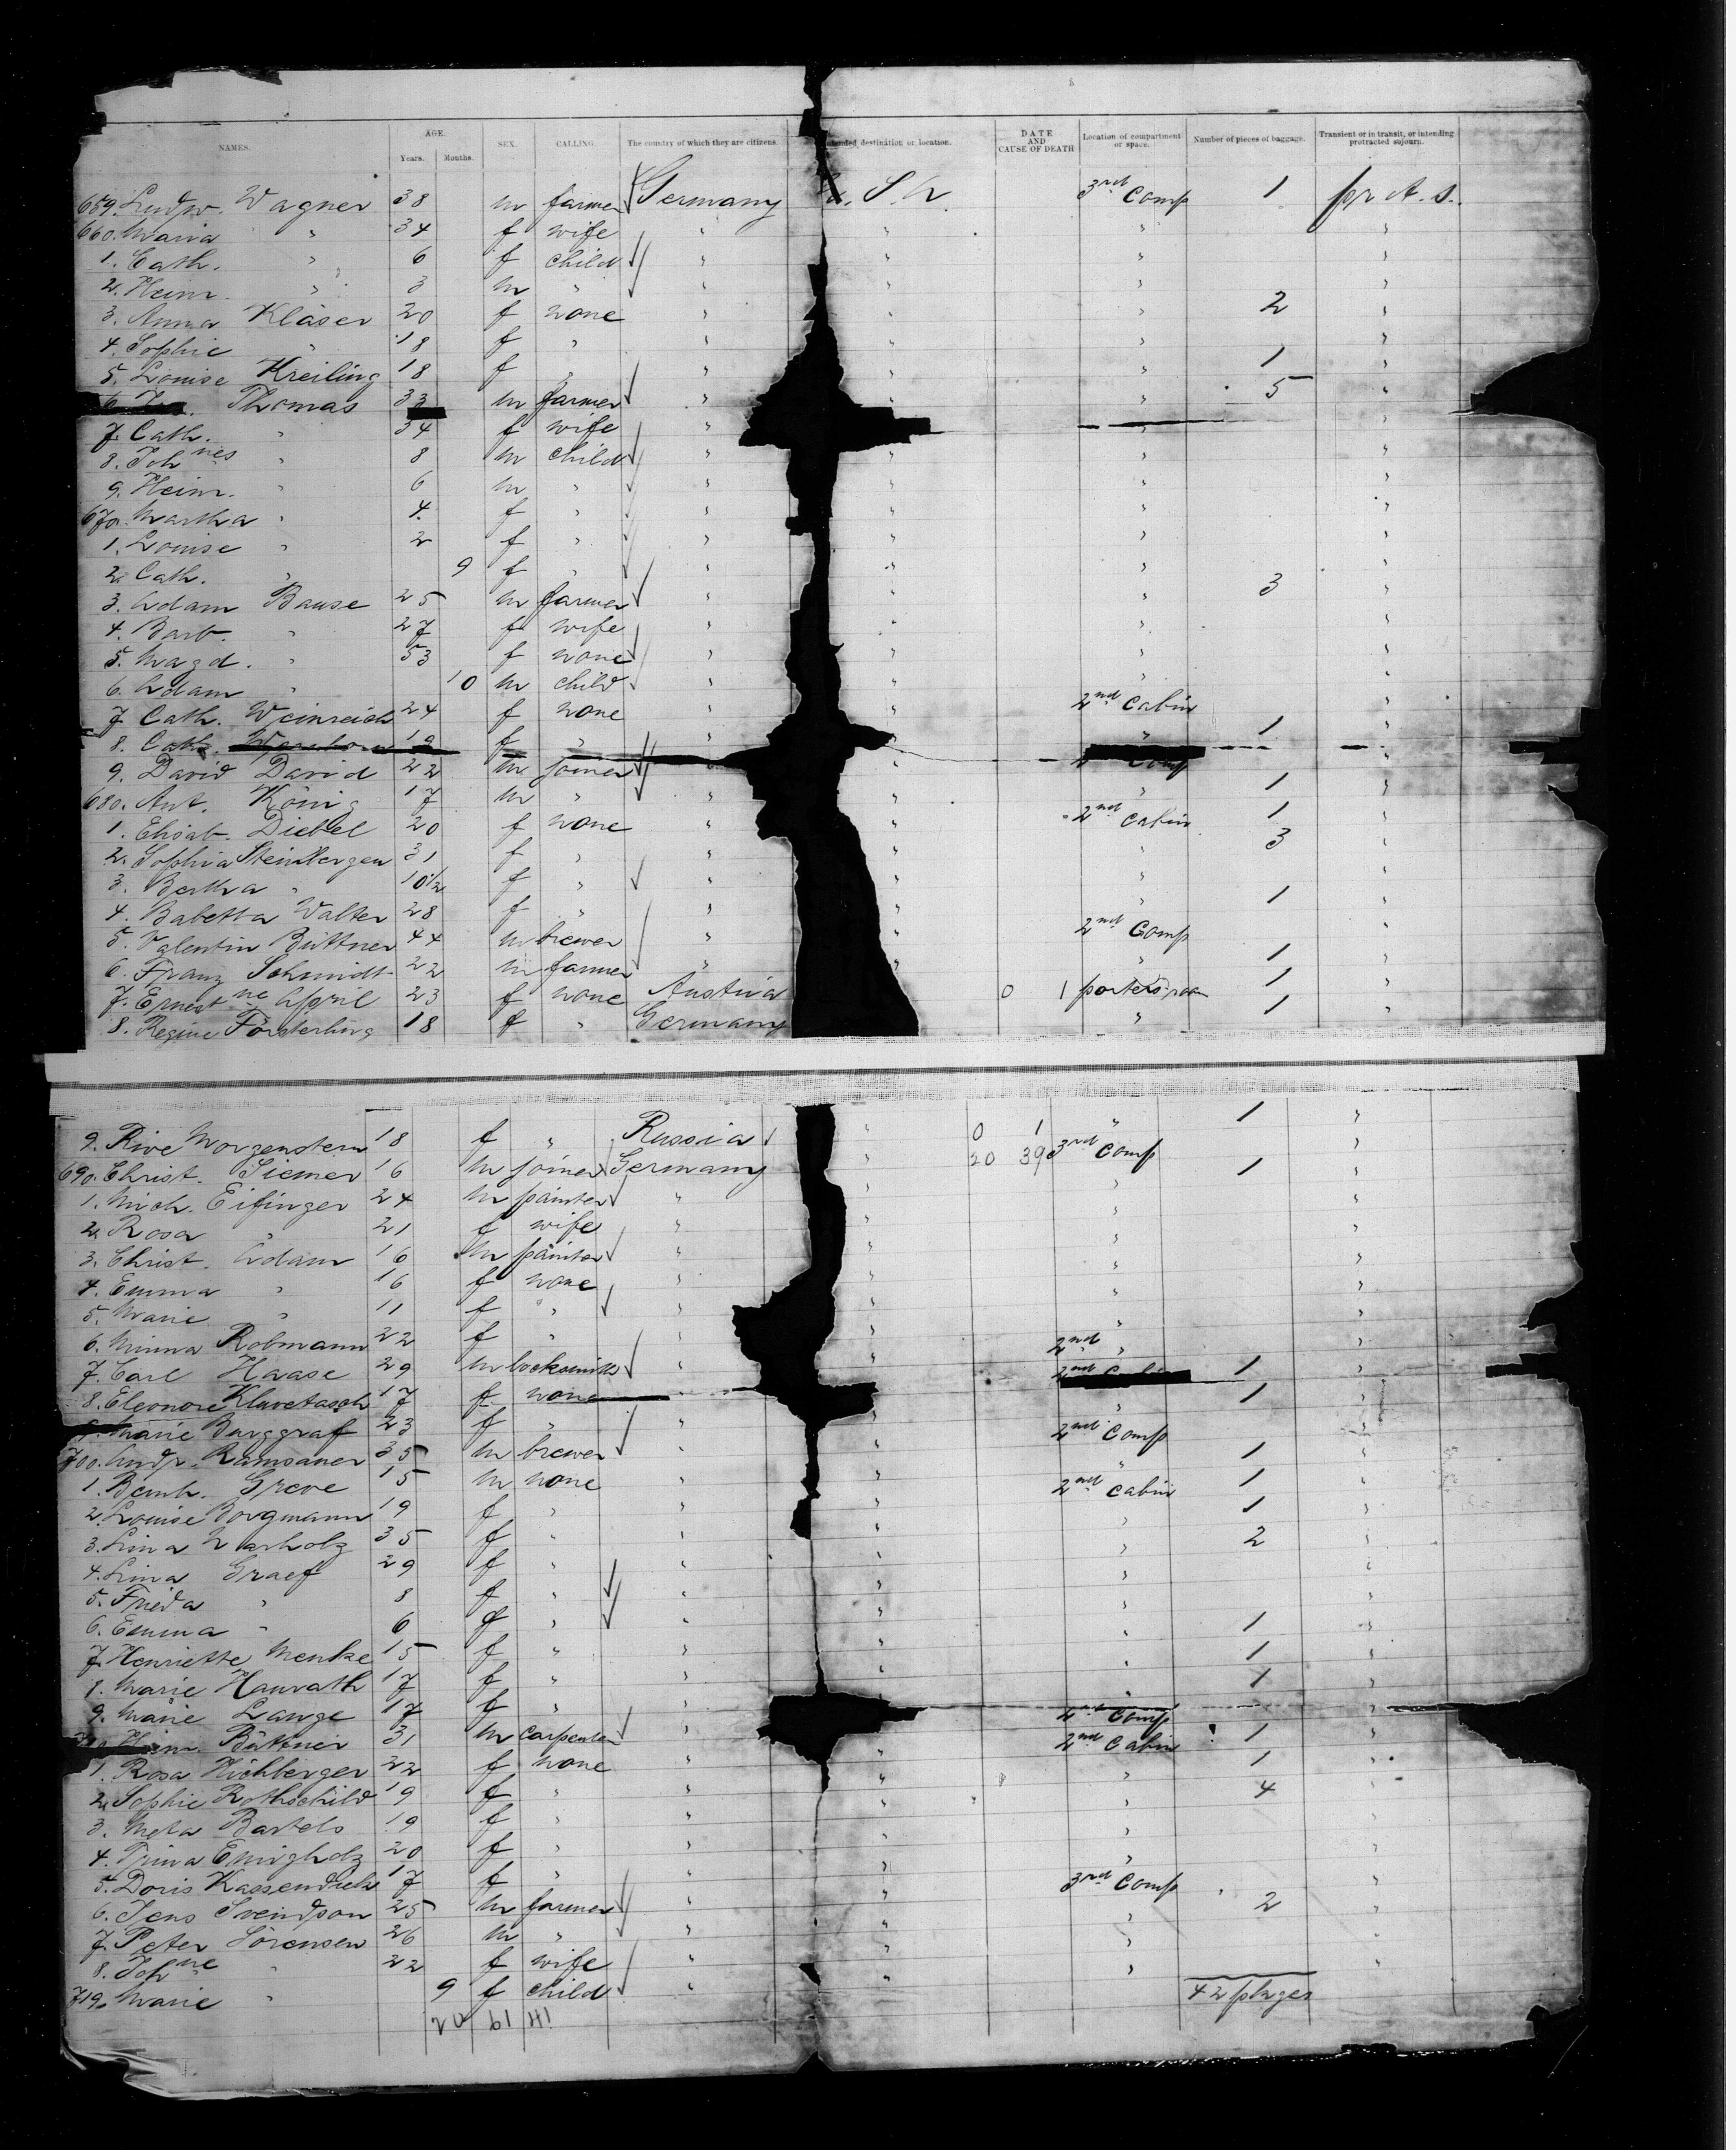 NAMES. AGE. Years. Months. SEX. CALLING. The country of which they are citizens. Intended destination or location. DATE AND CAUSE OF DEATH Location of compartment or space. Number of pieces of baggage. Transient or in transit, or intending protracted sojourn.
659. Ludw. Wagner 38 m farmer Germany U. S. A. 3rd Comp 1 pr A. s.
660. Maria " 34 f wife " " " "
1. Cath. " 6 f child " " " "
2. Heinr. " 3 m " " " " "
3. Anna Kläser 20 f none " " " 2 "
4. Sophie " 18 f " " " " "
5. Louise Kreiling 18 f " " " 1 "
6. Thomas 33 m farmer " " 5 "
7. Cath. " 34 f wife " " "
8. Johnes " 8 m child " " "
9. Heinr. " 6 m " " " "
670. Martha " 4 f " " " "
1. Louise " 2 f " " " " "
2. Cath. " 9 f " " " " "
3. Adam Bause 25 m farmer " " " 3 "
4. Barb. " 27 f wife " " " "
5. Magd. " 53 f none " " " "
6. Adam " 10 m child " " " "
7. Cath. Weinreich 24 f none " " 2nd Cabin "
8. Cath. 19 f " " " 1 "
9. David David 22 m joiner " " Comp "
680. Ant. König 17 m " " " " 1 "
1. Elisab. Diebel 20 f none " " 2nd Cabin 1 "
2. Sophia Steinbergen 31 f " " " " 3 "
3. Bertha " 10 1/2 f " " " " "
4. Babetta Walter 28 f " " " " 1 "
5. Valentin Büttner 44 m brewer " " 2nd Comp "
6. Franz Schmidt 22 m farmer " " " 1 "
7. Ernestne April 23 f none Austria 0 1 porters room 1 "
8. Regine Försterling 18 f " Germany " 1 "
9. Rive Morgenstern 18 f " Russia " 0 1 " 1 "
690. Christ. Siemer 16 m joiner Germany " 20 39 3rd Comp "
1. Mich. Eifinger 24 m painter " " " 1 "
2. Rosa " 21 f wife " " " "
3. Christ. Adam 16 m painter " " " "
4. Emma " 16 f none " " " "
5. Marie " 11 f " " " " "
6. Minna Robmann 22 f " " " 2nd " "
7. Carl Haase 29 m locksmith " " 2nd 1 "
8. Eleonore 17 f none " 1 "
9. Marie Burggraf 23 f " " " "
700. Ludw. Ramsauer 35 m brewer " " 2nd Comp "
1. Bernh. Greve 15 m none " " " 1 "
2. Louise Borgmann 19 f " " " 2nd Cabin 1 "
3. Lina 35 f " " " " 1 "
4. Lina Graef 29 f " " " " 2 "
5. Frieda " 8 f " " " " "
6. Emma " 6 f " " " " "
7. Henriette Menke 15 f " " " " 1 "
8. Marie Hanrath 17 f " " " " 1 "
9. Marie Lange 17 f " " " 1 "
Heinr. Büttner 31 m carpenter " Comp "
1. Rosa Hichberger 22 f none " " 2nd Cabin 1 "
2. Sophie Rothschild 19 f " " " " 1 "
3. Meta Bartels 19 f " " " " 4 "
4. Trina Emigholz 20 f " " " " "
5. Doris Kassendiek 17 f " " " " "
6. Jens Svendson 25 m farmer " " 3rd Comp "
7. Peter Sörensen 26 m " " " " 2 "
8. Johne " 22 f wife " " " "
719. Marie " 9 f child " " " "
42 pkges
20 61 141